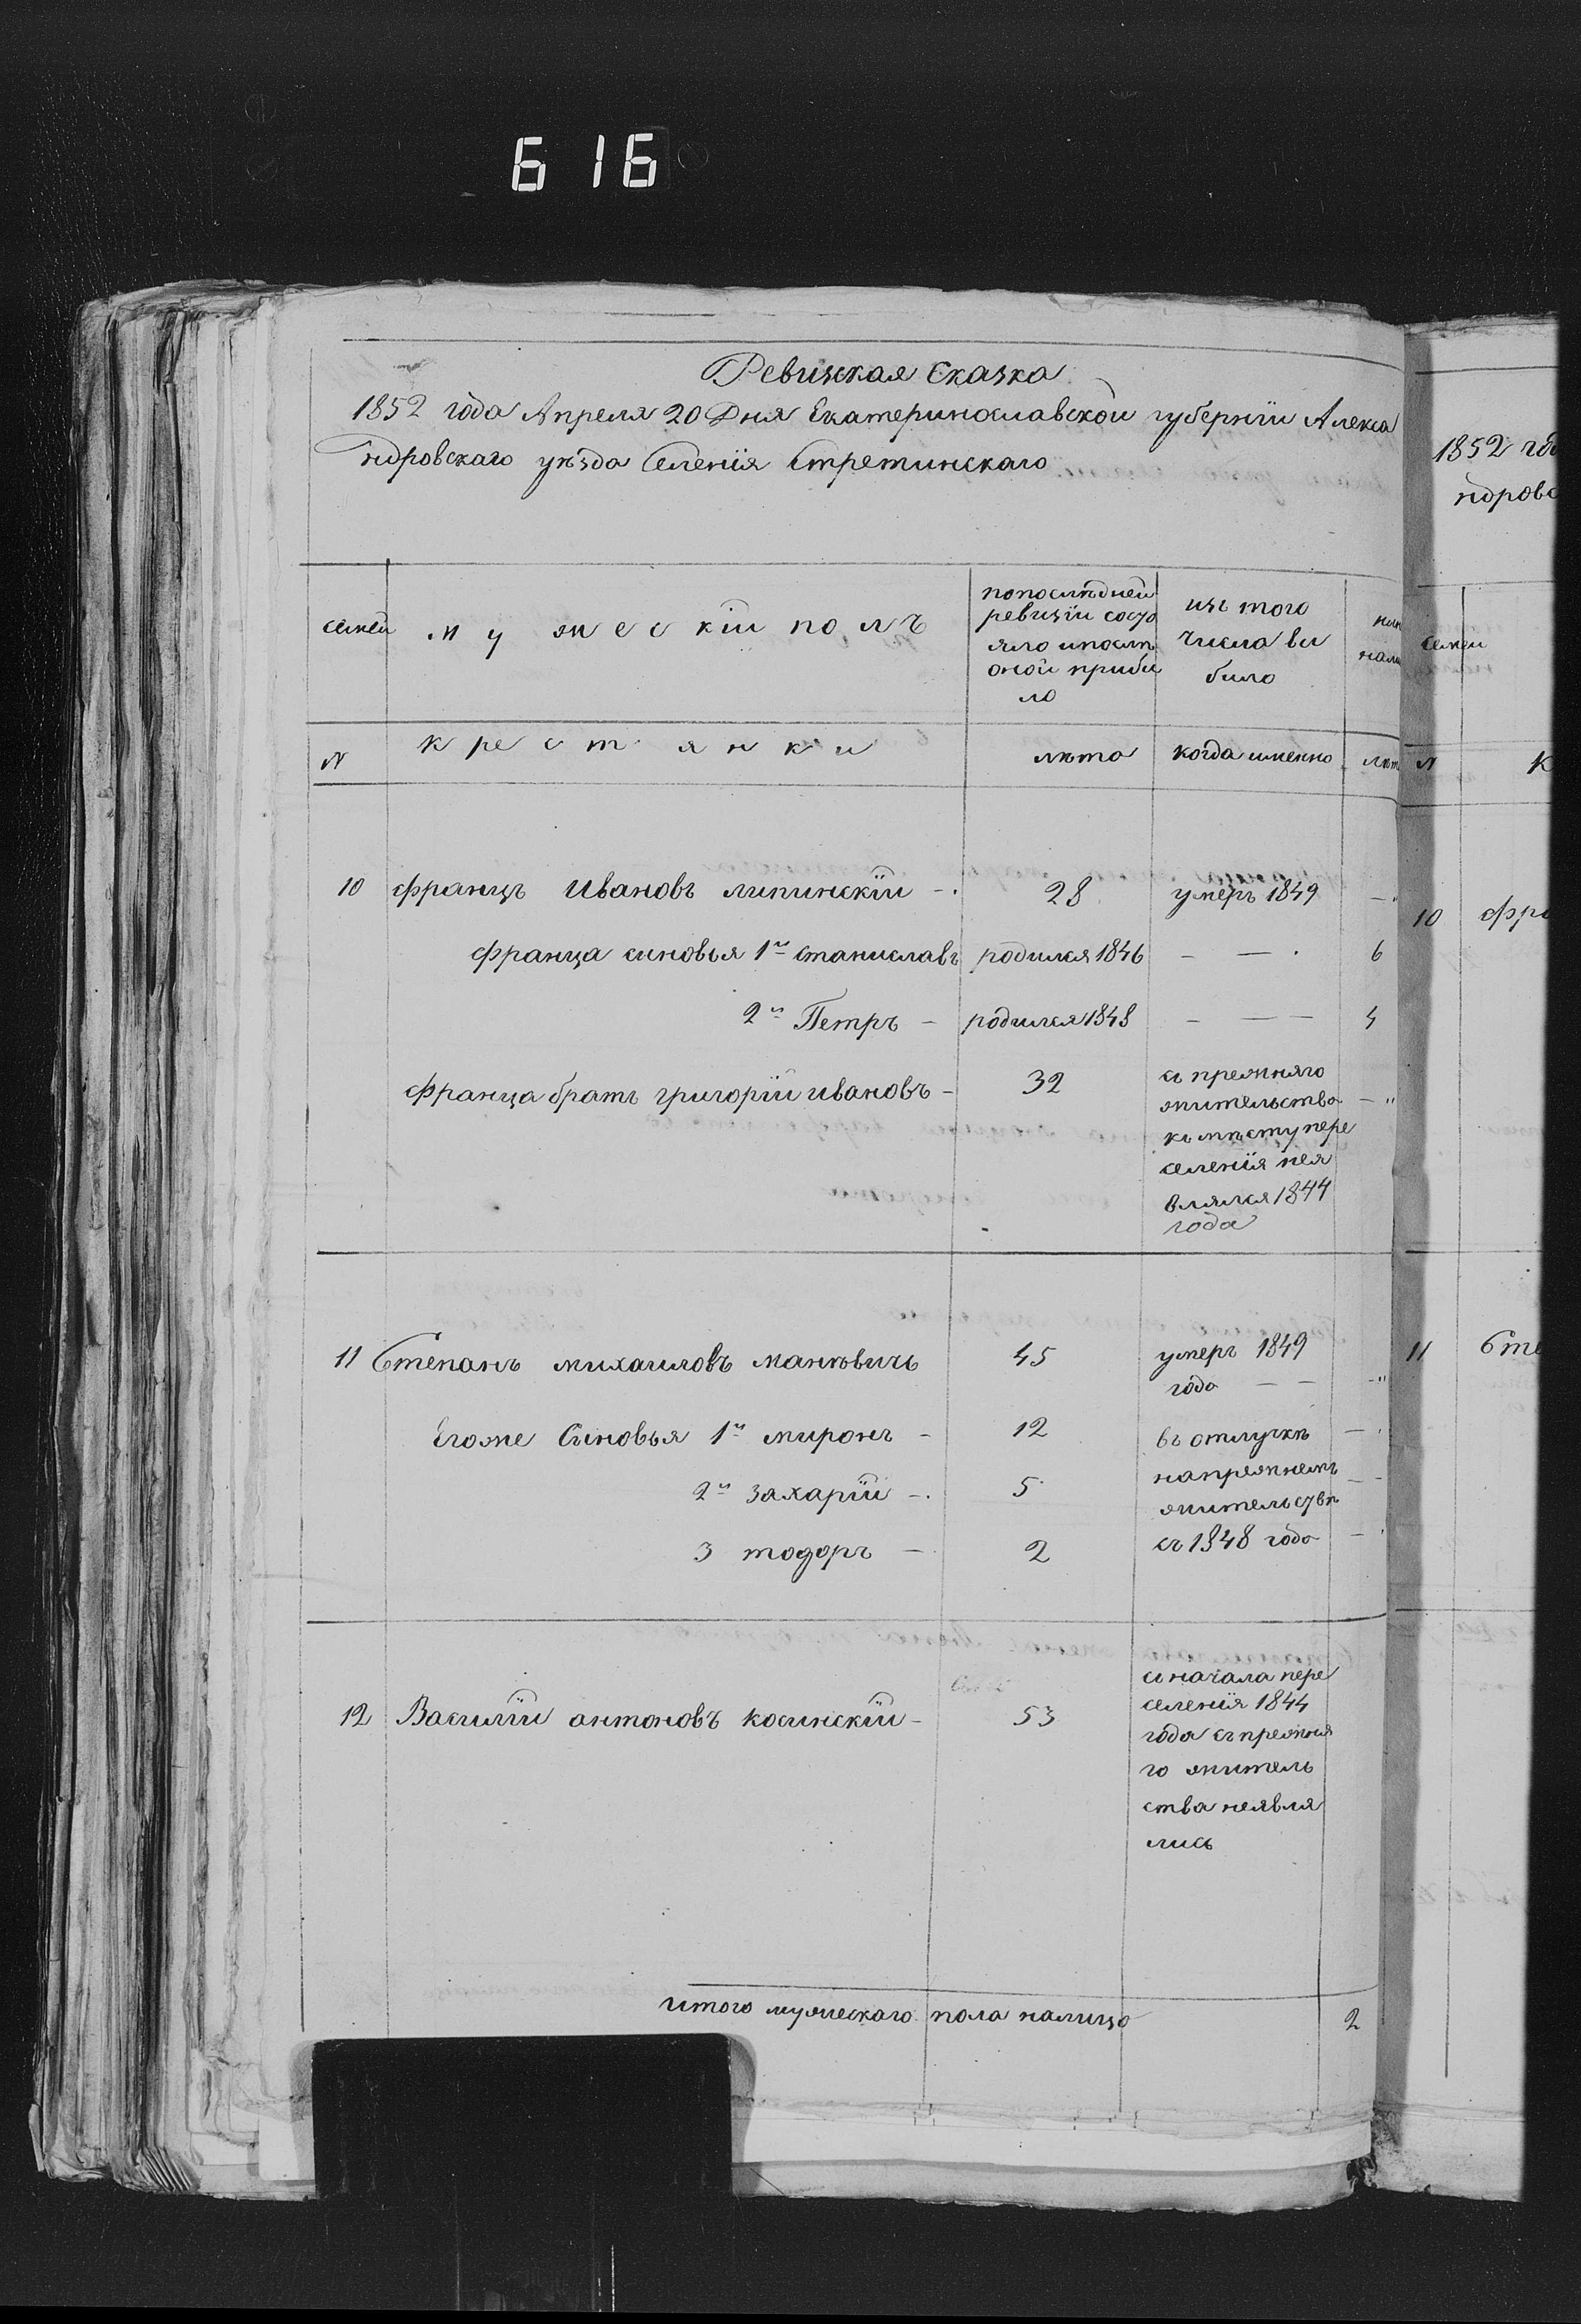 616
Ревизкая Сказка
1852 года Апреля 20 Дня Екатеринославской губернїи Алекса
ндровскаго уѣзда Селенїя Стретинскаго
семей
мужескїй полъ
попослѣдней
ревизїи состо
яло ипослѣ
оной прибы
ло
изъ того
числа вы
было
нын
нали
N
крестянки
лѣта
когда именно
лѣт
10 францъ Ивановъ липинскїй 28 умеръ 1849
франца сыновья 1й станиславъ родился 1846 6
2й Петръ родился 1848 4
франца братъ григорїй ивановъ 32
съ прежняго
жительства
къ мѣсту пере
селенїя нея
влялся 1844
года
11 Степанъ михайловъ манкѣвичь 45 умеръ 1849
года
Егоже Сыновья 1й миронъ 12 въ отлучкѣ
2й захарїй 5 напрежнемъ
жительствѣ
3 тодоръ 2 съ 1848 года
12 Василїй антоновъ косинскїй 53
сначала пере
селенїя 1844
года съ прежня
го житель
ства неявля
лись
итого мужескаго пола налицо 2
1852 год
ндровс
семей
N К
10 фра
11 Сте